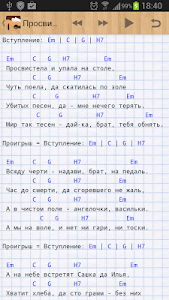 18:40
Просви...
Вступление: Em | C | G | H7
Em C G H7
Просвистела и упала на столе,
Em C G H7
Чуть поела, да скатилась по золе
Em C G H7
Убитых песен, да - мне нечего терять.
Em C G H7
Мир так тесен - дай-ка, брат, тебя обнять.
Проигрыш = Вступление: Em | C | G | H7
Em C G H7
Всяду черти - надави, брат, на педаль.
Em C G H7
Час до смерти, да сгоревшего не жаль,
Em C G H7
А в чистом поле - ангелочки, васильки.
Em C G H7
А мы на воле, и нет ни гари, ни тоски.
Проигрыш = Вступление: Em | C | G | H7
Em C G H7
А на небе встретят Сашка да Илья,
Em C G H7
Хватит хлеба, да сто грамм - без них